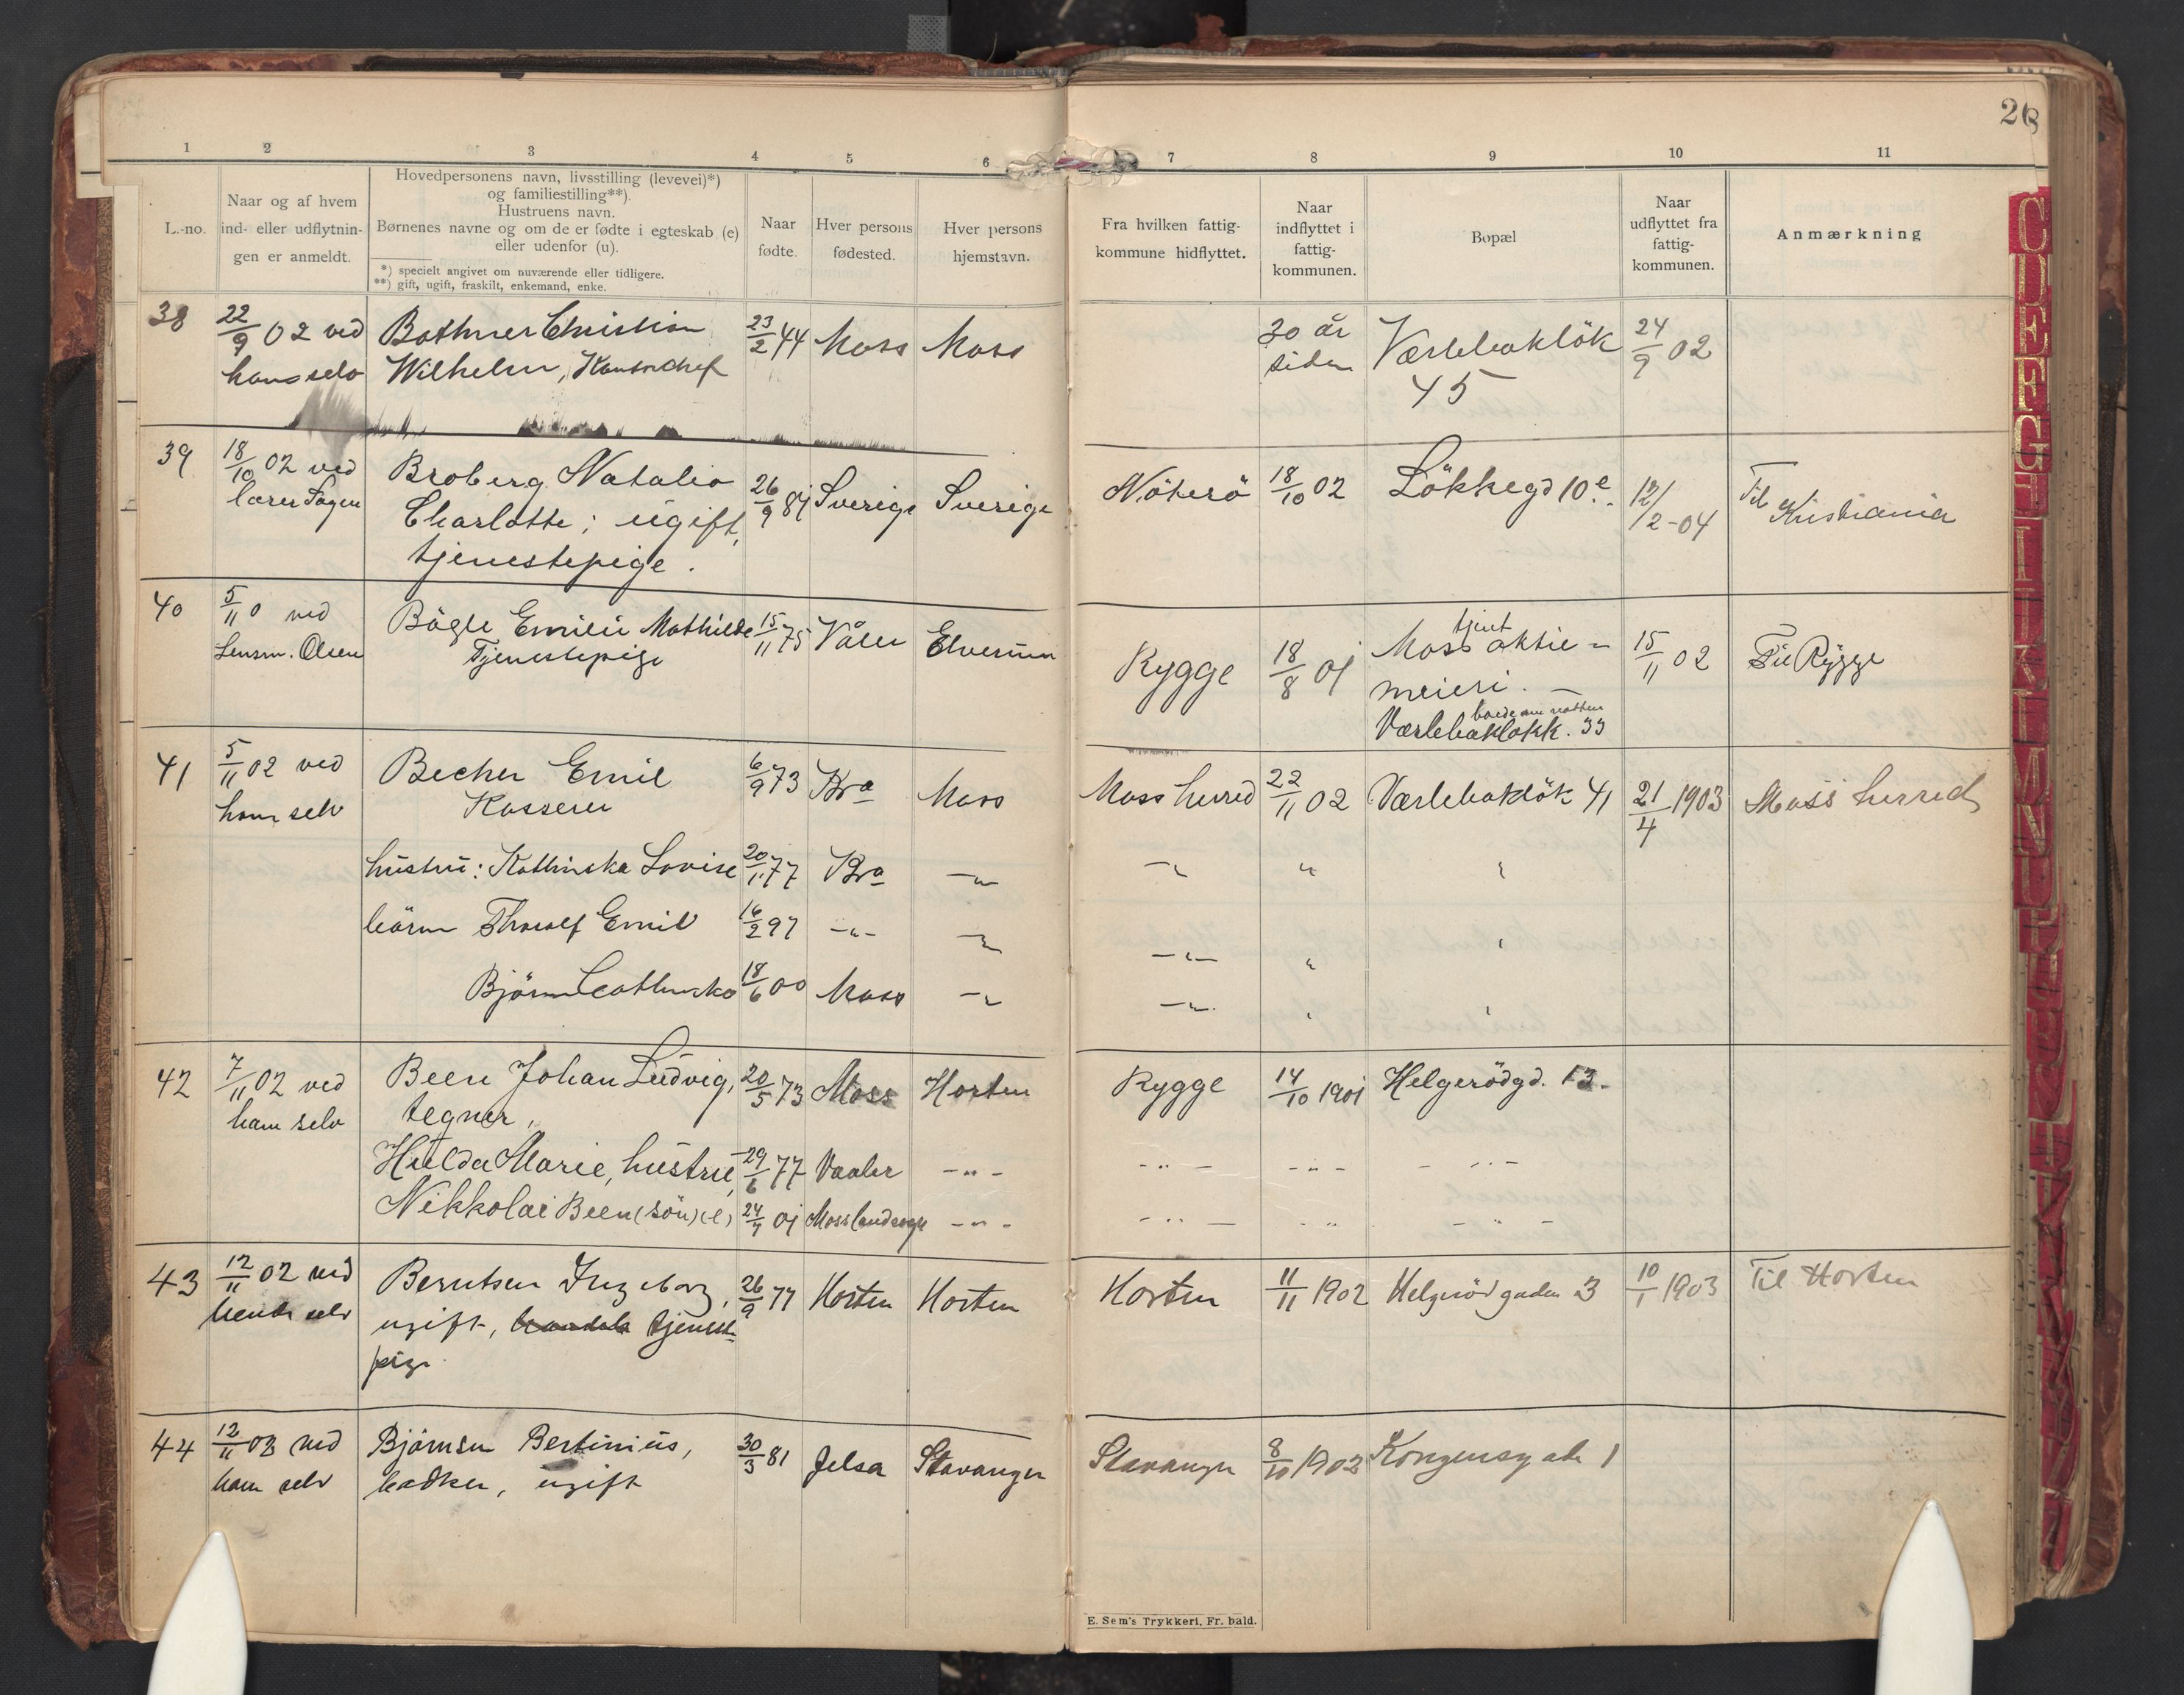 26
1 2 3 4 5 6 7 8 9 10 11
L.-no.
Naar og af hvem
ind- eller udflytnin-
gen er anmeldt.
Hovedpersonens navn, livsstilling (levevei)*)
og familiestilling**).
Hustruens navn.
Børnenes navne og om de er fødte i egteskab (e)
eller udenfor (u).
*) specielt angivet om nuværende eller tidligere.
**) gift, ugift, fraskilt, enkemand, enke.
Naar
fødte.
Hver persons
fødested.
Hver persons
hjemstavn.
Fra hvilken fattig-
kommune hidflyttet.
Naar
indflyttet i
fattig-
kommunen.
Bopæl
Naar
udflyttet fra
fattig-
kommunen.
Anmærkning
38 22/9 02 ved Bothner Christian 23/2 44 Moss Moss 30 år Værlebaklök 24/9 02
ham selv Wilhelm, siden 45
39 18/10 02 ved Broberg Natalia 26/9 81 Sverige Sverige Nöterö 18/10 02 Lökkegd 10e. 12/2-04 Til Kristiania
lærer Charlotte; ugift,
tjenestepige.
40 5/11 0 ved Bögle Emilie Mathilde 15/11 75 Våler Elverum Rygge 18/8 01 tjent Moss aktie- 15/11 02 Til Rygge
Lensm. Olsen Tjenestepige meieri. -
boede om natten
Værlebakløkk. 33
41 5/11 02 ved Becher Emil 6/9 73 Kra Moss Moss herred 22/11 02 Værlebaklök 41 21/4 1903 Moss herred
ham selv Kasserer
hustru: Kathinka Lovise 20/11 77 Kra -"- -"- " "
börn Thoralf Emil 16/2 97 -"- -"- -"- " "
Björn Cathinka 18/6 00 Moss -"- -"- " "
42 7/11 02 ved Been Johan Ludvig, 20/5 73 Moss Horten Rygge 14/10 1901 Helgerödgd. 13.
ham selv tegner,
Hulda Marie, hustru, 29/6 77 Vaaler -"- -"- -"- -"-
Nikkolai Been (sön) (e) 24/7 01 Moss landsogn -"- -"- -"- -"-
43 12/11 02 ved Berntsen Ingeborg, 26/9 77 Horten Horten Horten 11/11 1902 Helgerödgaden 3 10/1 1903 Til Horten
hende selv ugift, tjeneste-
pige
44 12/11 03 ved Björnsen Bertinius, 30/3 81 Jelsa Stavanger Stavanger 8/10 1902 Kongensgade 1
ham selv bødker, ugift
E. Sem's Trykkeri, Fr. hald.